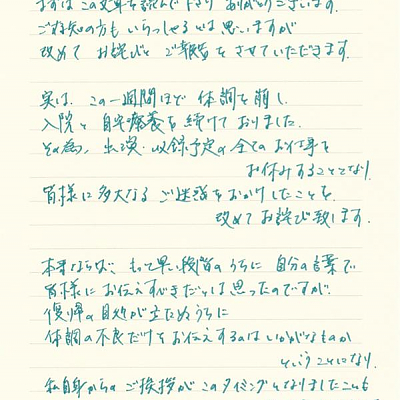 まずは この文章を読んで下さり ありがとうございます.
ご存知の方も いらっしゃるとは 思いますが
改めて お詫びと ご報告 を させていただきます.
実は、この一週間ほど 体調を崩し.
入院と 自宅療養を 続けて おりました.
その為、出演・収録予定の 全ての お仕事を
お休みすることとなり.
皆様に 多大なる ご迷惑を おかけしたことを.
改めて お詫び 致します.
本来ならば、もっと早い段階の うちに 自分の言葉で
皆様に お伝えすべきだとは 思ったのですが.
復帰の 目処が 立たぬうちに
体調の 不良だけを お伝えするのは いかがなものか
ということになり.
私自身からの ご挨拶が このタイミングとなりましたことも